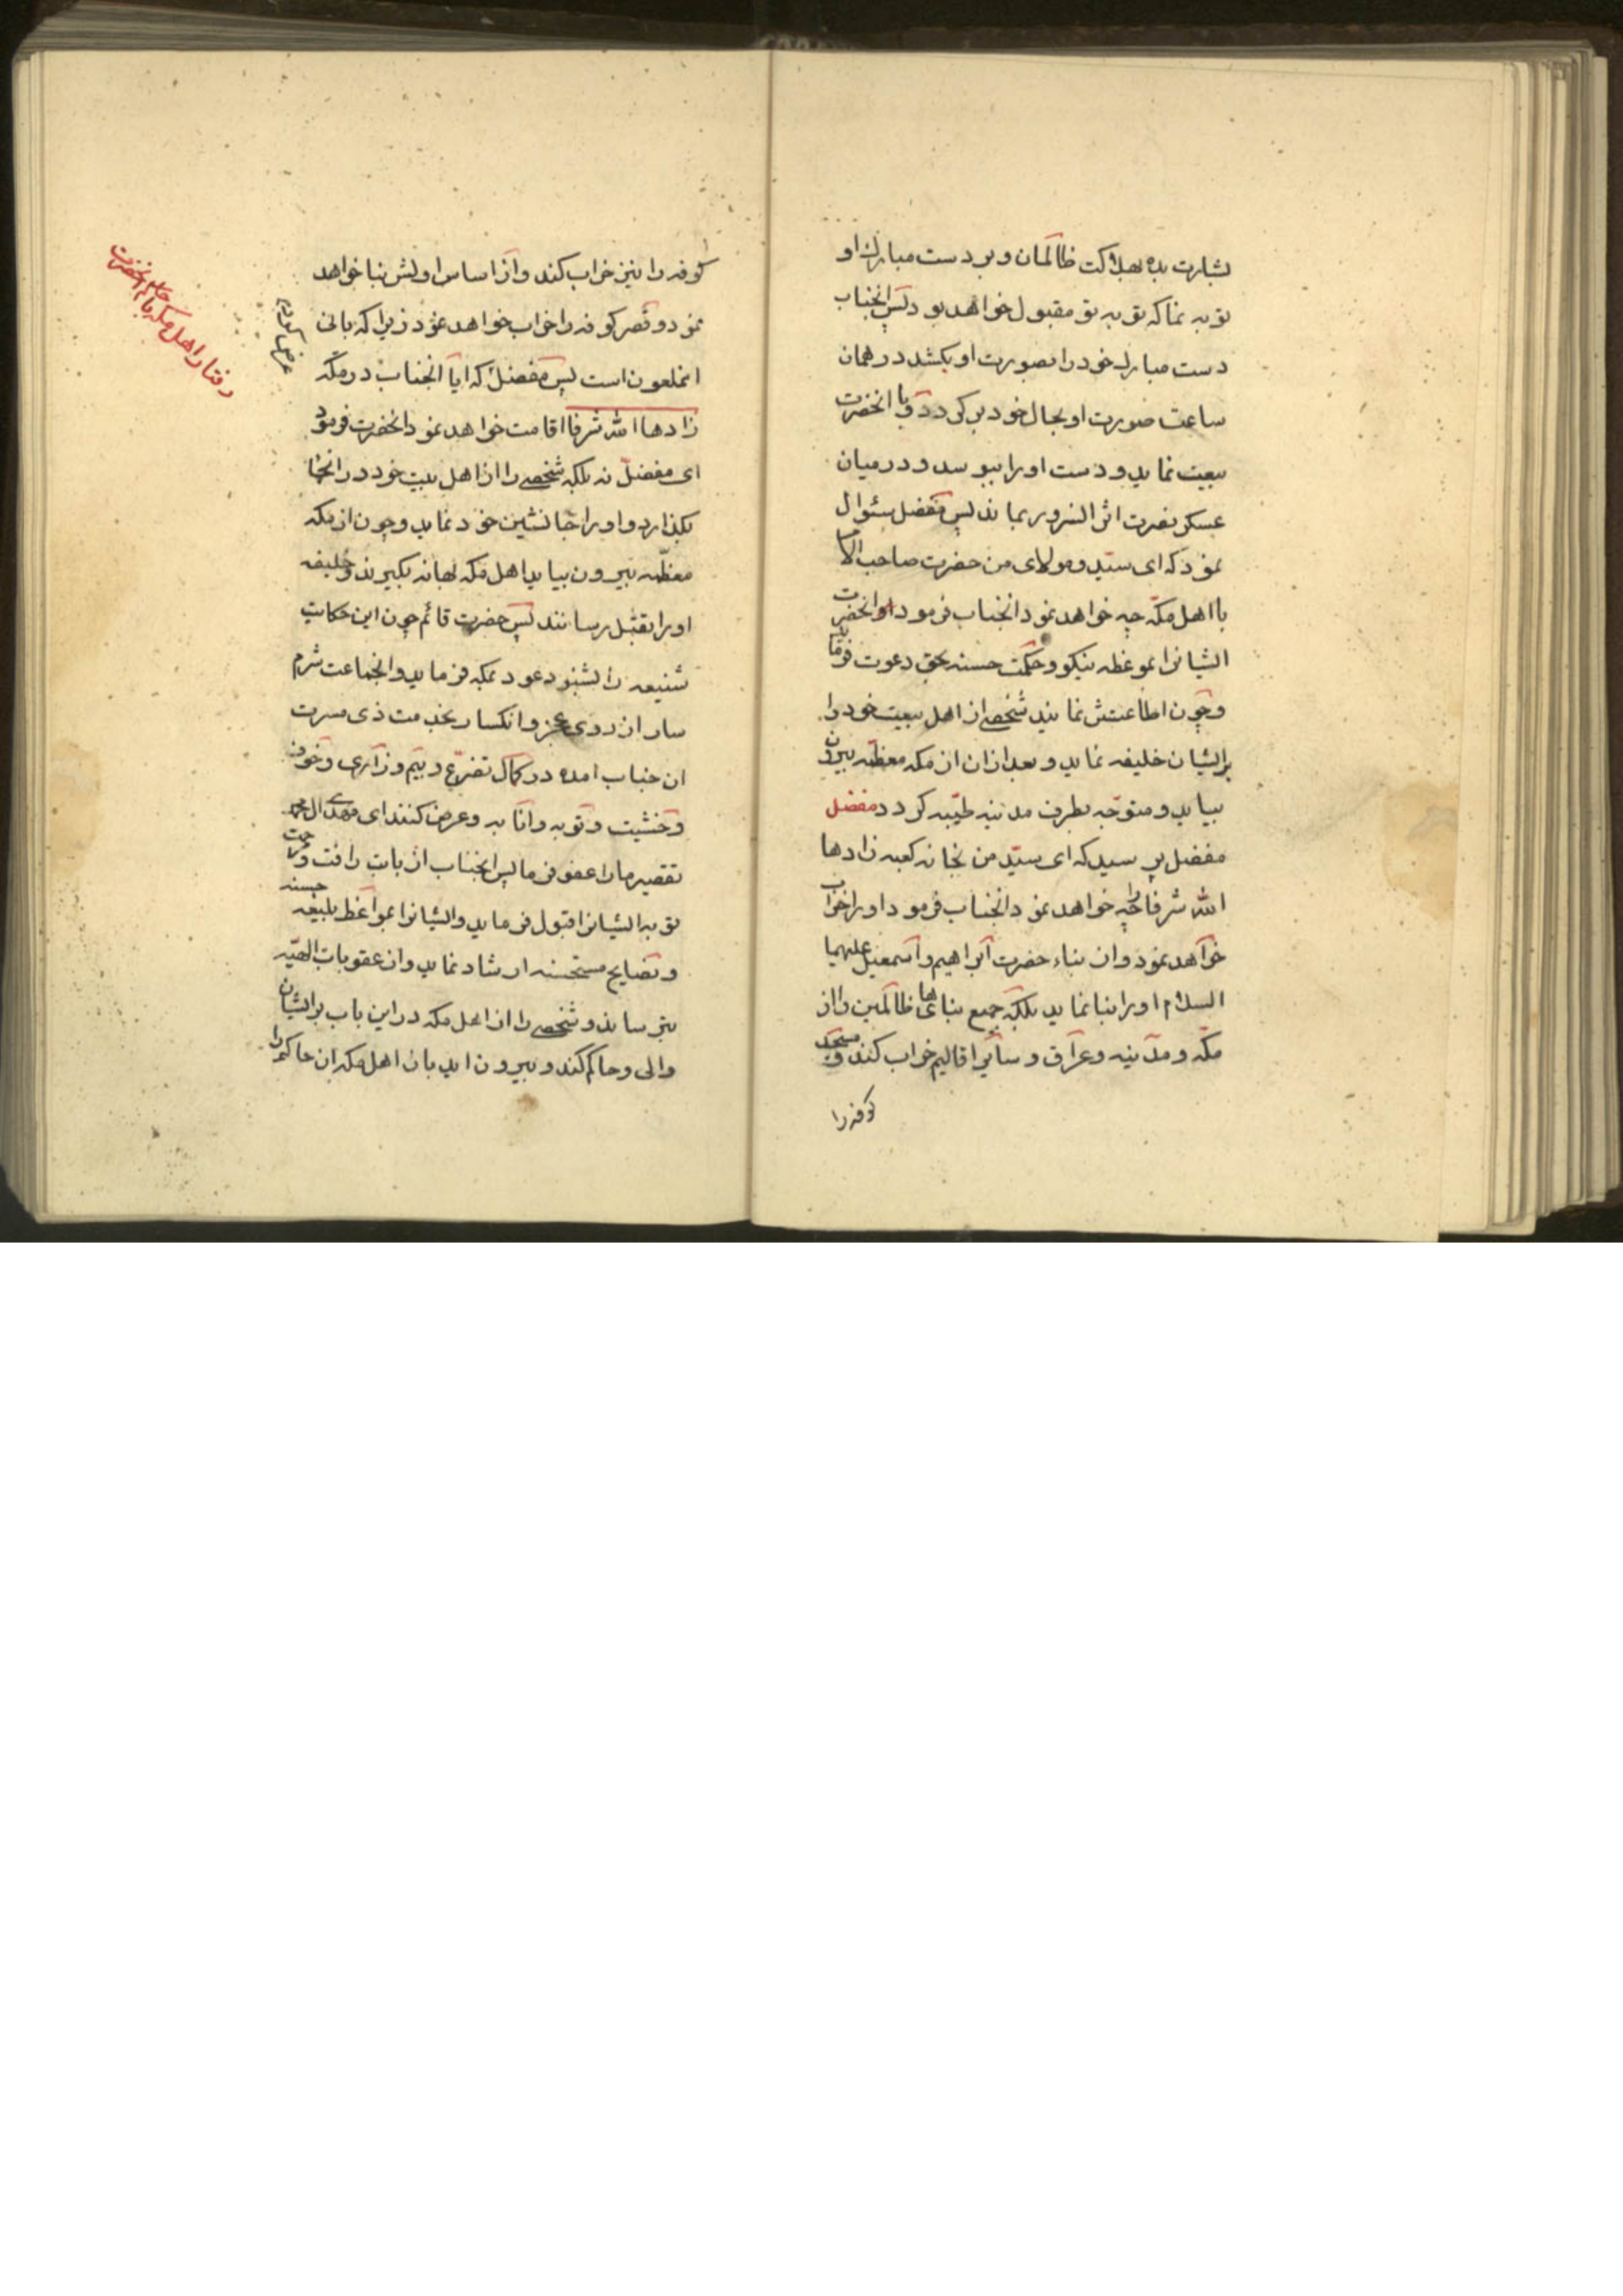 بشارت بده بهلاکت ظالمان و بر دست مبارک او
توبه نما که توبه تو مقبول خواهد بود پس انجناب
دست مبارک خود را بصورت او بکشد در همان
ساعت صورت او بحال خود بر کردد و با انحضرت
بیعت نماید و دست او را ببوسد و در میان
عسکر نصرت اثر السرور بماند پس مفضل سئوال
نمود که ای سید و مولای من حضرت صاحب الامر
با اهل مکه چه خواهد نمود انجناب فرمود او انحضرت
ایشانرا بموعظه نیکو و حکمت حسنه بحق دعوت فرماید
و چون اطاعتش نمایند شخصی از اهل بیعت خود را
بر ایشان خلیفه نماید و بعد از ان از مکه معظمه بیرون
بیاید و متوجه بطرف مدینه طیبه کردد مفضل
مفضل پرسید که ای سید من بخانه کعبه زادها
الله شرفا چه خواهد نمود انجناب فرمود او را خراب
خواهد نمود و ان بناء حضرت ابراهیم و اسمعیل علیهما
السلام او را بنا نماید بلکه جمیع بناهای ظالمین را از
مکه و مدینه و عراق و سایر اقالیم خراب کند و مسجد
کوفه را
کوفه را نیز خراب کند و از اساس اولش بنا خواهد
نمود و قصر کوفه را خراب خواهد نمود زیرا که بانی
انملعون است پس مفضل که ایا انجناب در مکه
زادها الله شرفا اقامت خواهد نمود انحضرت فرمود
ای مفضل نه بلکه شخصی را از اهل بیت خود در انجا
بکذارد و او را جانشین خود نماید و چون از مکه
معظمه بیرون بیاید اهل مکه بهانه بکیرند و خلیفه
او را بقتل رسانند پس حضرت قائم چون این حکایت
شنیعه را بشنود عود بمکه فرماید و انجماعت شرم
سار از روی عجز و انکسار بخدمت ذی مسرت
ان جناب امده در کمال تضرع و بیم و زاری و خوف
و خشیت و توبه و انابه و عرض کنند ای مهدی ال محمد
تقصیر ما را عفو فرما پس انجناب از بابت رافت و رحمت
توبه ایشانرا قبول فرماید و ایشانرا بمواعظ بلیغه حسنه
و نصایح مستحسنه ارشاد نماید و از عقوبات الهیه
بترساند و شخصی را از اهل مکه در این باب بر ایشان
والی و حاکم کند و بیرون اید باز اهل مکه ان حاکم را
رفتار اهل مکه با حاکم انحضرت